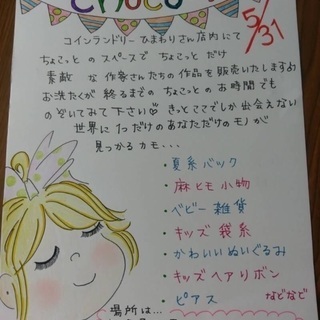 5/31
コインランドリー ひまわりさん店内にて
ちょこっと の スペースで ちょこっと だけ
素敵 な 作家さんたちの作品を販売いたしますよ
お洗たくが 終るまでの ちょこっとの お時間でも
のぞいてみて下さい♡ きっとここでしか出会えない
世界に 1つだけの あなただけの モノが
見つかるカモ・・・
・夏糸バック
・麻ヒモ小物
・ベビー雑貨
・キッズ袋系
・かわいいぬいぐるみ
・キッズヘアリボン
・ピアス などなど
場所は…